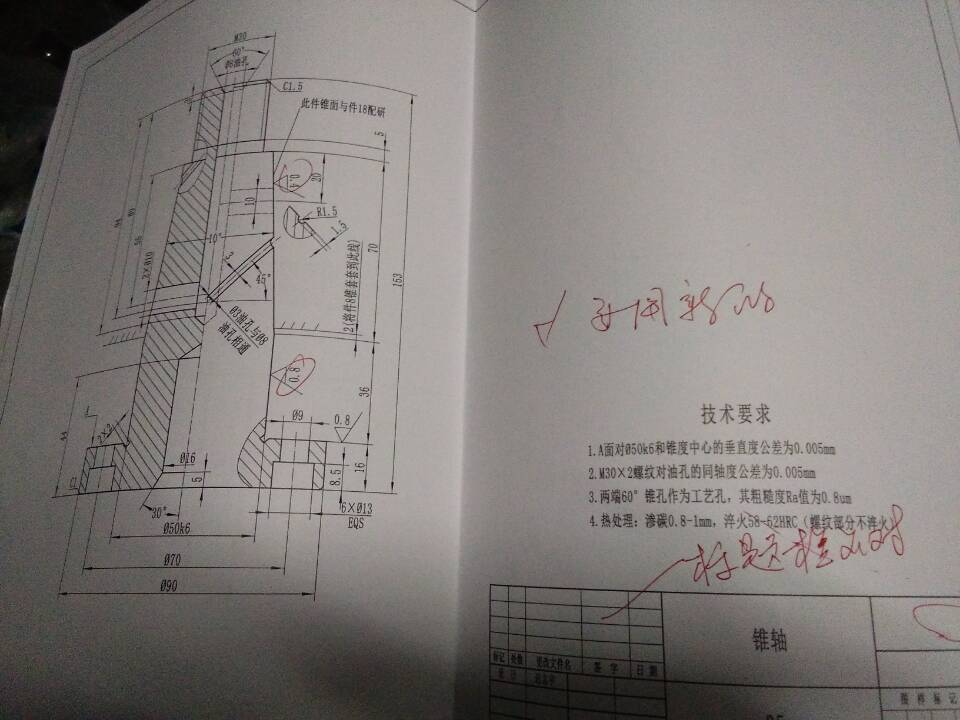 M30
60°
Ø8油孔
C1.5
此件锥面与件18配研
5
0.4
20
10
R1.5
1.5
10°
2×Ø10
3
45°
70
153
2(将件8锥套套到此线)
Ø3油孔与Ø8
油孔相通
0.8
36
Ø9
0.8
2×2
Ø16
5
8.5
16
30°
6×Ø13
EQS
Ø50k6
Ø70
Ø90
√
技术要求
1.A面对Ø50k6和锥度中心的垂直度公差为0.005mm
2.M30×2螺纹对油孔的同轴度公差为0.005mm
3.两端60°锥孔作为工艺孔，其粗糙度Ra值为0.8um
4.热处理：渗碳0.8-1mm，淬火58~62HRC（螺纹部分不淬火）
标题栏不对
锥轴
标记 处数 更改文件名 签字 日期
图样标记